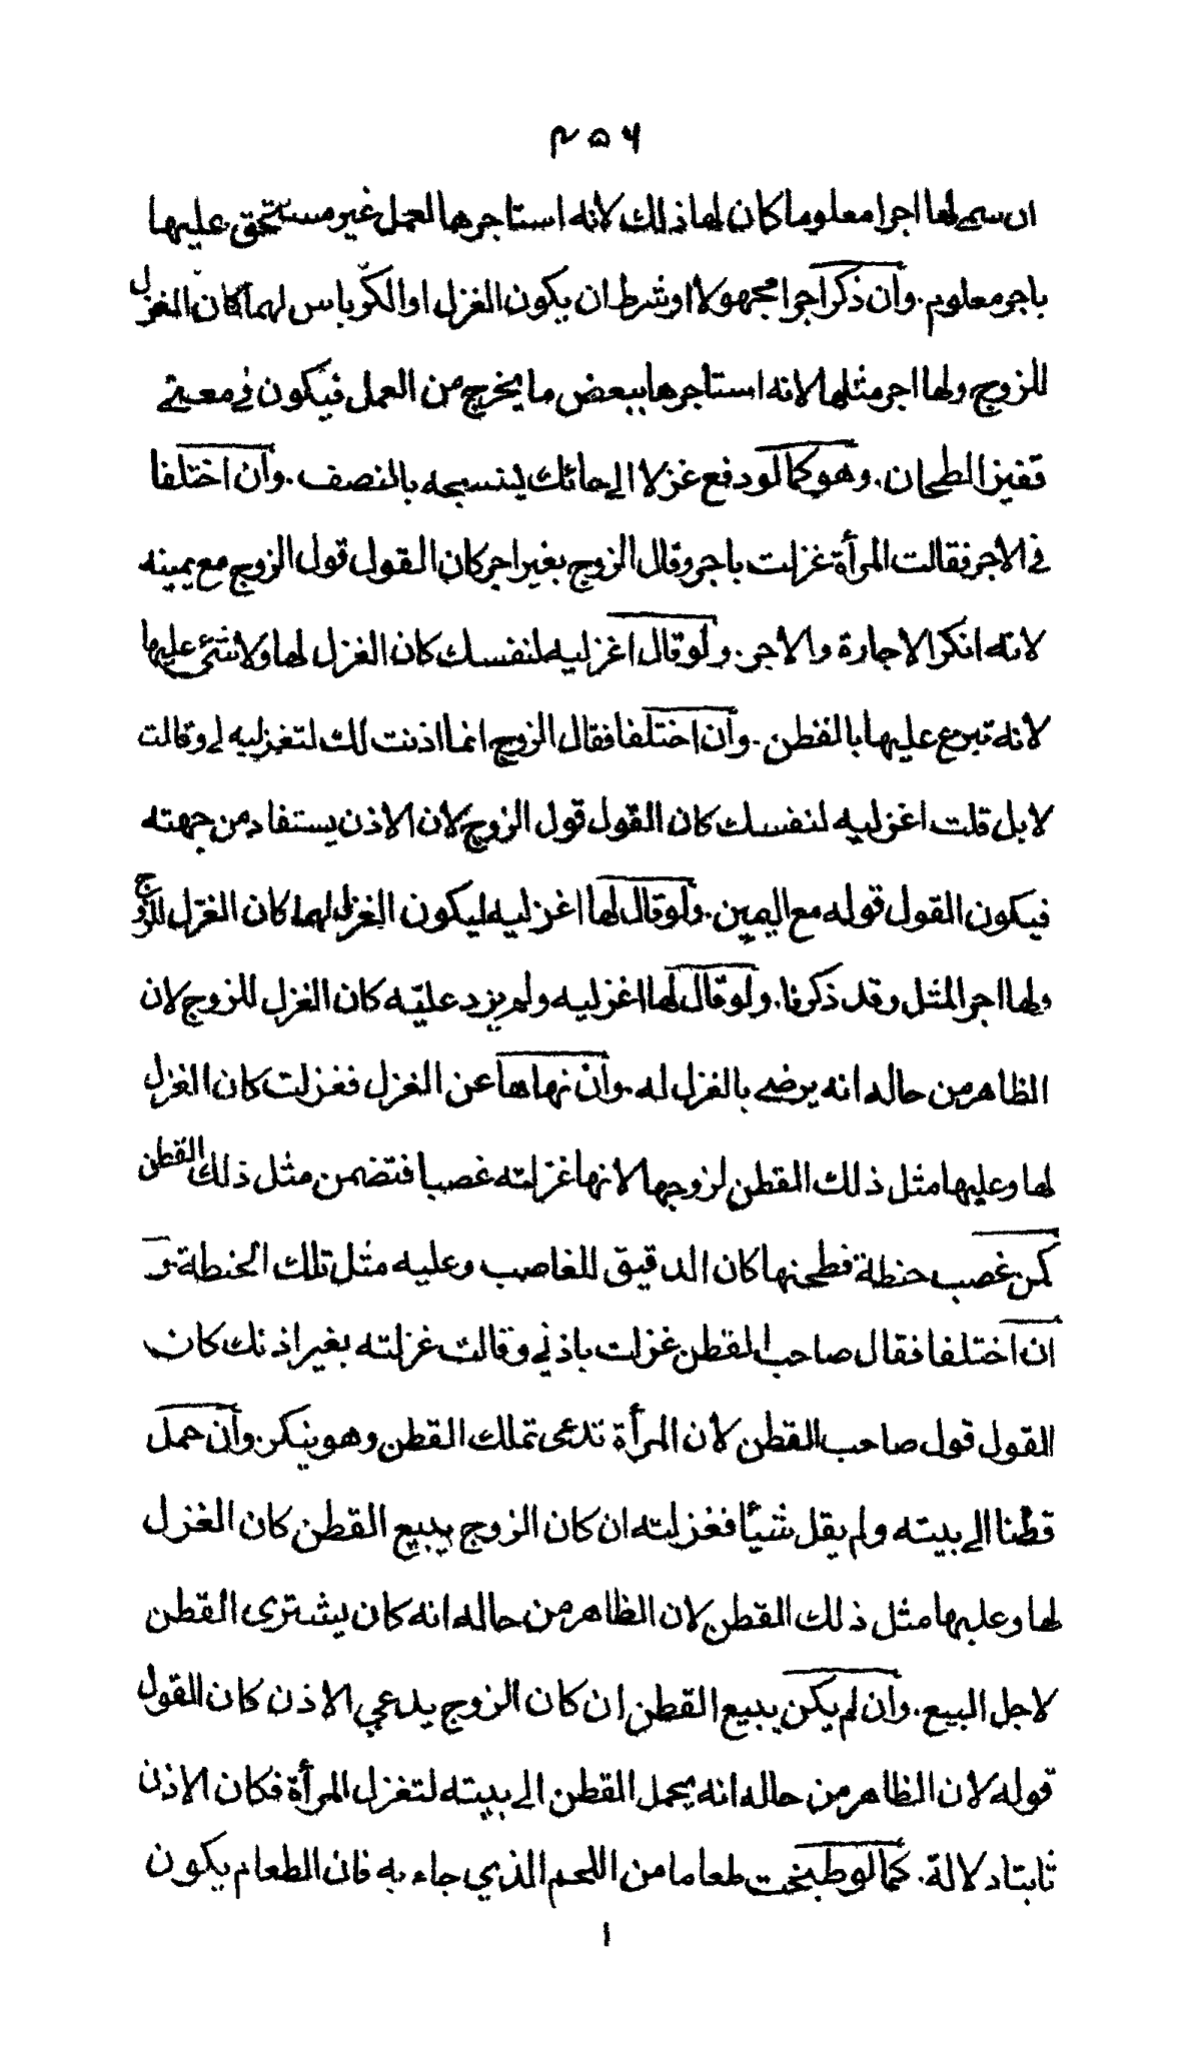 ۴۵۶
ان سمى لها اجرا معلوما كان لها ذلك لانه استاجرها لعمل غير مستحق عليها
باجر معلوم. وان ذكر اجرا مجهولا او شرط ان يكون الغزل او الكرباس لهما كان الغزل
للزوج ولها اجر مثلها لانه استاجرها ببعض ما يخرج من العمل فيكون في معنى
قفيز الطحان. وهو كما لو دفع غزلا الى حائك لينسجه بالنصف. وان اختلفا
في الاجر فقالت المرأة غزلت باجر وقال الزوج بغير اجر كان القول قول الزوج مع يمينه
لانه انكر الاجارة والاجر. ولو قال اغزليه لنفسك كان الغزل لها ولا شئ عليها
لانه تبرع عليها بالقطن. وان اختلفا فقال الزوج انما اذنت لك لتغزليه لى وقالت
لا بل قلت اغزليه لنفسك كان القول قول الزوج لان الاذن يستفاد من جهته
فيكون القول قوله مع اليمين. ولو قال لها اغزليه ليكون الغزل لهما كان الغزل للزوج
ولها اجر المثل وقد ذكرنا. ولو قال لها اغزليه ولم يزد عليه كان الغزل للزوج لان
الظاهر من حاله انه يرضى بالغزل له. وان نهاها عن الغزل فغزلت كان الغزل
لها وعليها مثل ذلك القطن لزوجها لانها غزلته غصبا فتضمن مثل ذلك القطن
كمن غصب حنطة فطحنها كان الدقيق للغاصب وعليه مثل تلك الحنطة. و
ان اختلفا فقال صاحب القطن غزلت باذني وقالت غزلته بغير اذنك كان
القول قول صاحب القطن لان المرأة تدعى تملك القطن وهو ينكر. وان حمل
قطنا الى بيته ولم يقل شيأ فغزلته ان كان الزوج يبيع القطن كان الغزل
لها وعليها مثل ذلك القطن لان الظاهر من حاله انه كان يشترى القطن
لاجل البيع. وان لم يكن يبيع القطن ان كان الزوج يدعي الاذن كان القول
قوله لان الظاهر من حاله انه يحمل القطن الى بيته لتغزل المرأة فكان الاذن
ثابتا دلالة. كما لو طبخت طعاما من اللحم الذي جاء به فان الطعام يكون
ا